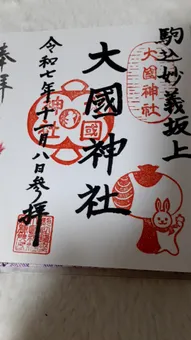 駒込妙義坂上
大國神社
大國神社
神國
令和七年十一月八日参拝
奉拝